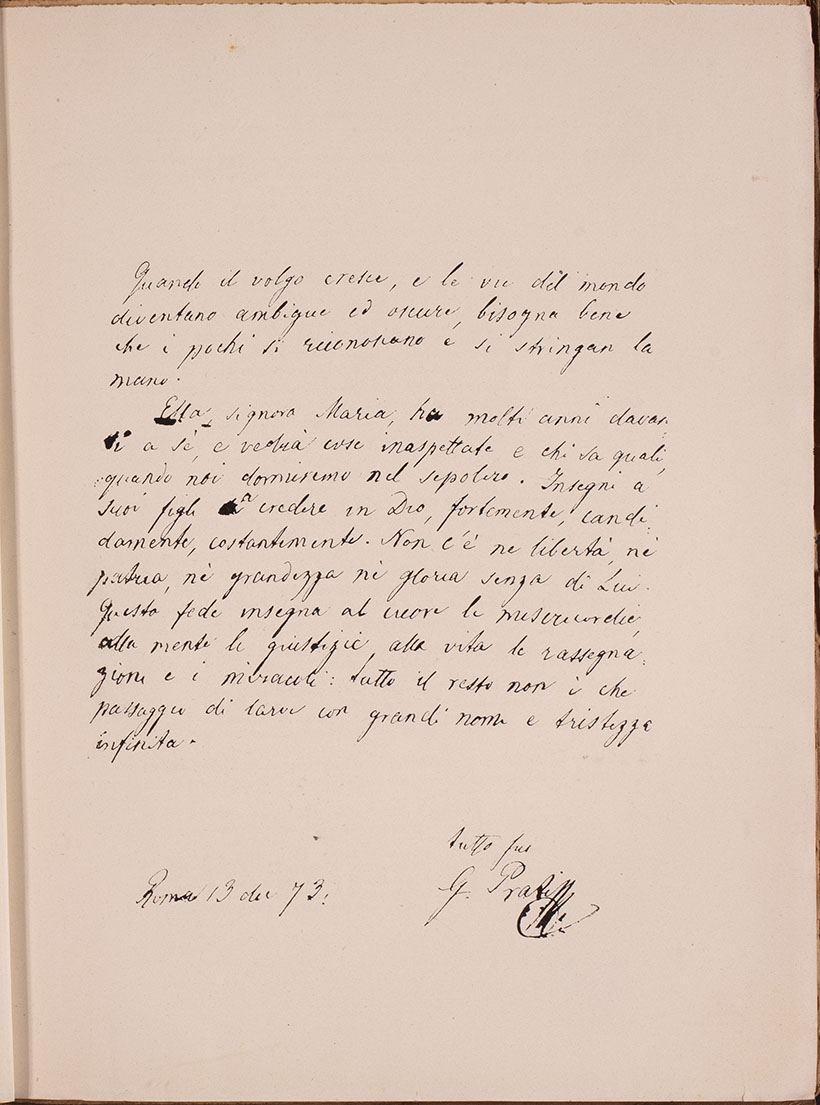 Quando il volgo cresce, e le vie del mondo
diventano ambigue ed oscure, bisogna bene
che i pochi si riconoscano e si stringan la
mano.
Ella, signora Maria, ha molti anni davan-
ti a sè, e vedrà cose inaspettate e chi sa quali,
quando noi dormiremo nel sepolcro. Insegni a
suoi figli a credere in Dio, fortemente, candi-
damente, costantemente. Non c'è ne libertà, nè
patria, nè grandezza nè gloria senza di Lui.
Questa fede insegna al cuore la misericordia,
alla mente la giustizia, alla vita la rassegna-
zione e i miracoli: tutto il resto non è che
passaggio di larve con grandi nomi e tristezza
infinita.
tutto suo
Roma 13 dec 73.
G. Prati